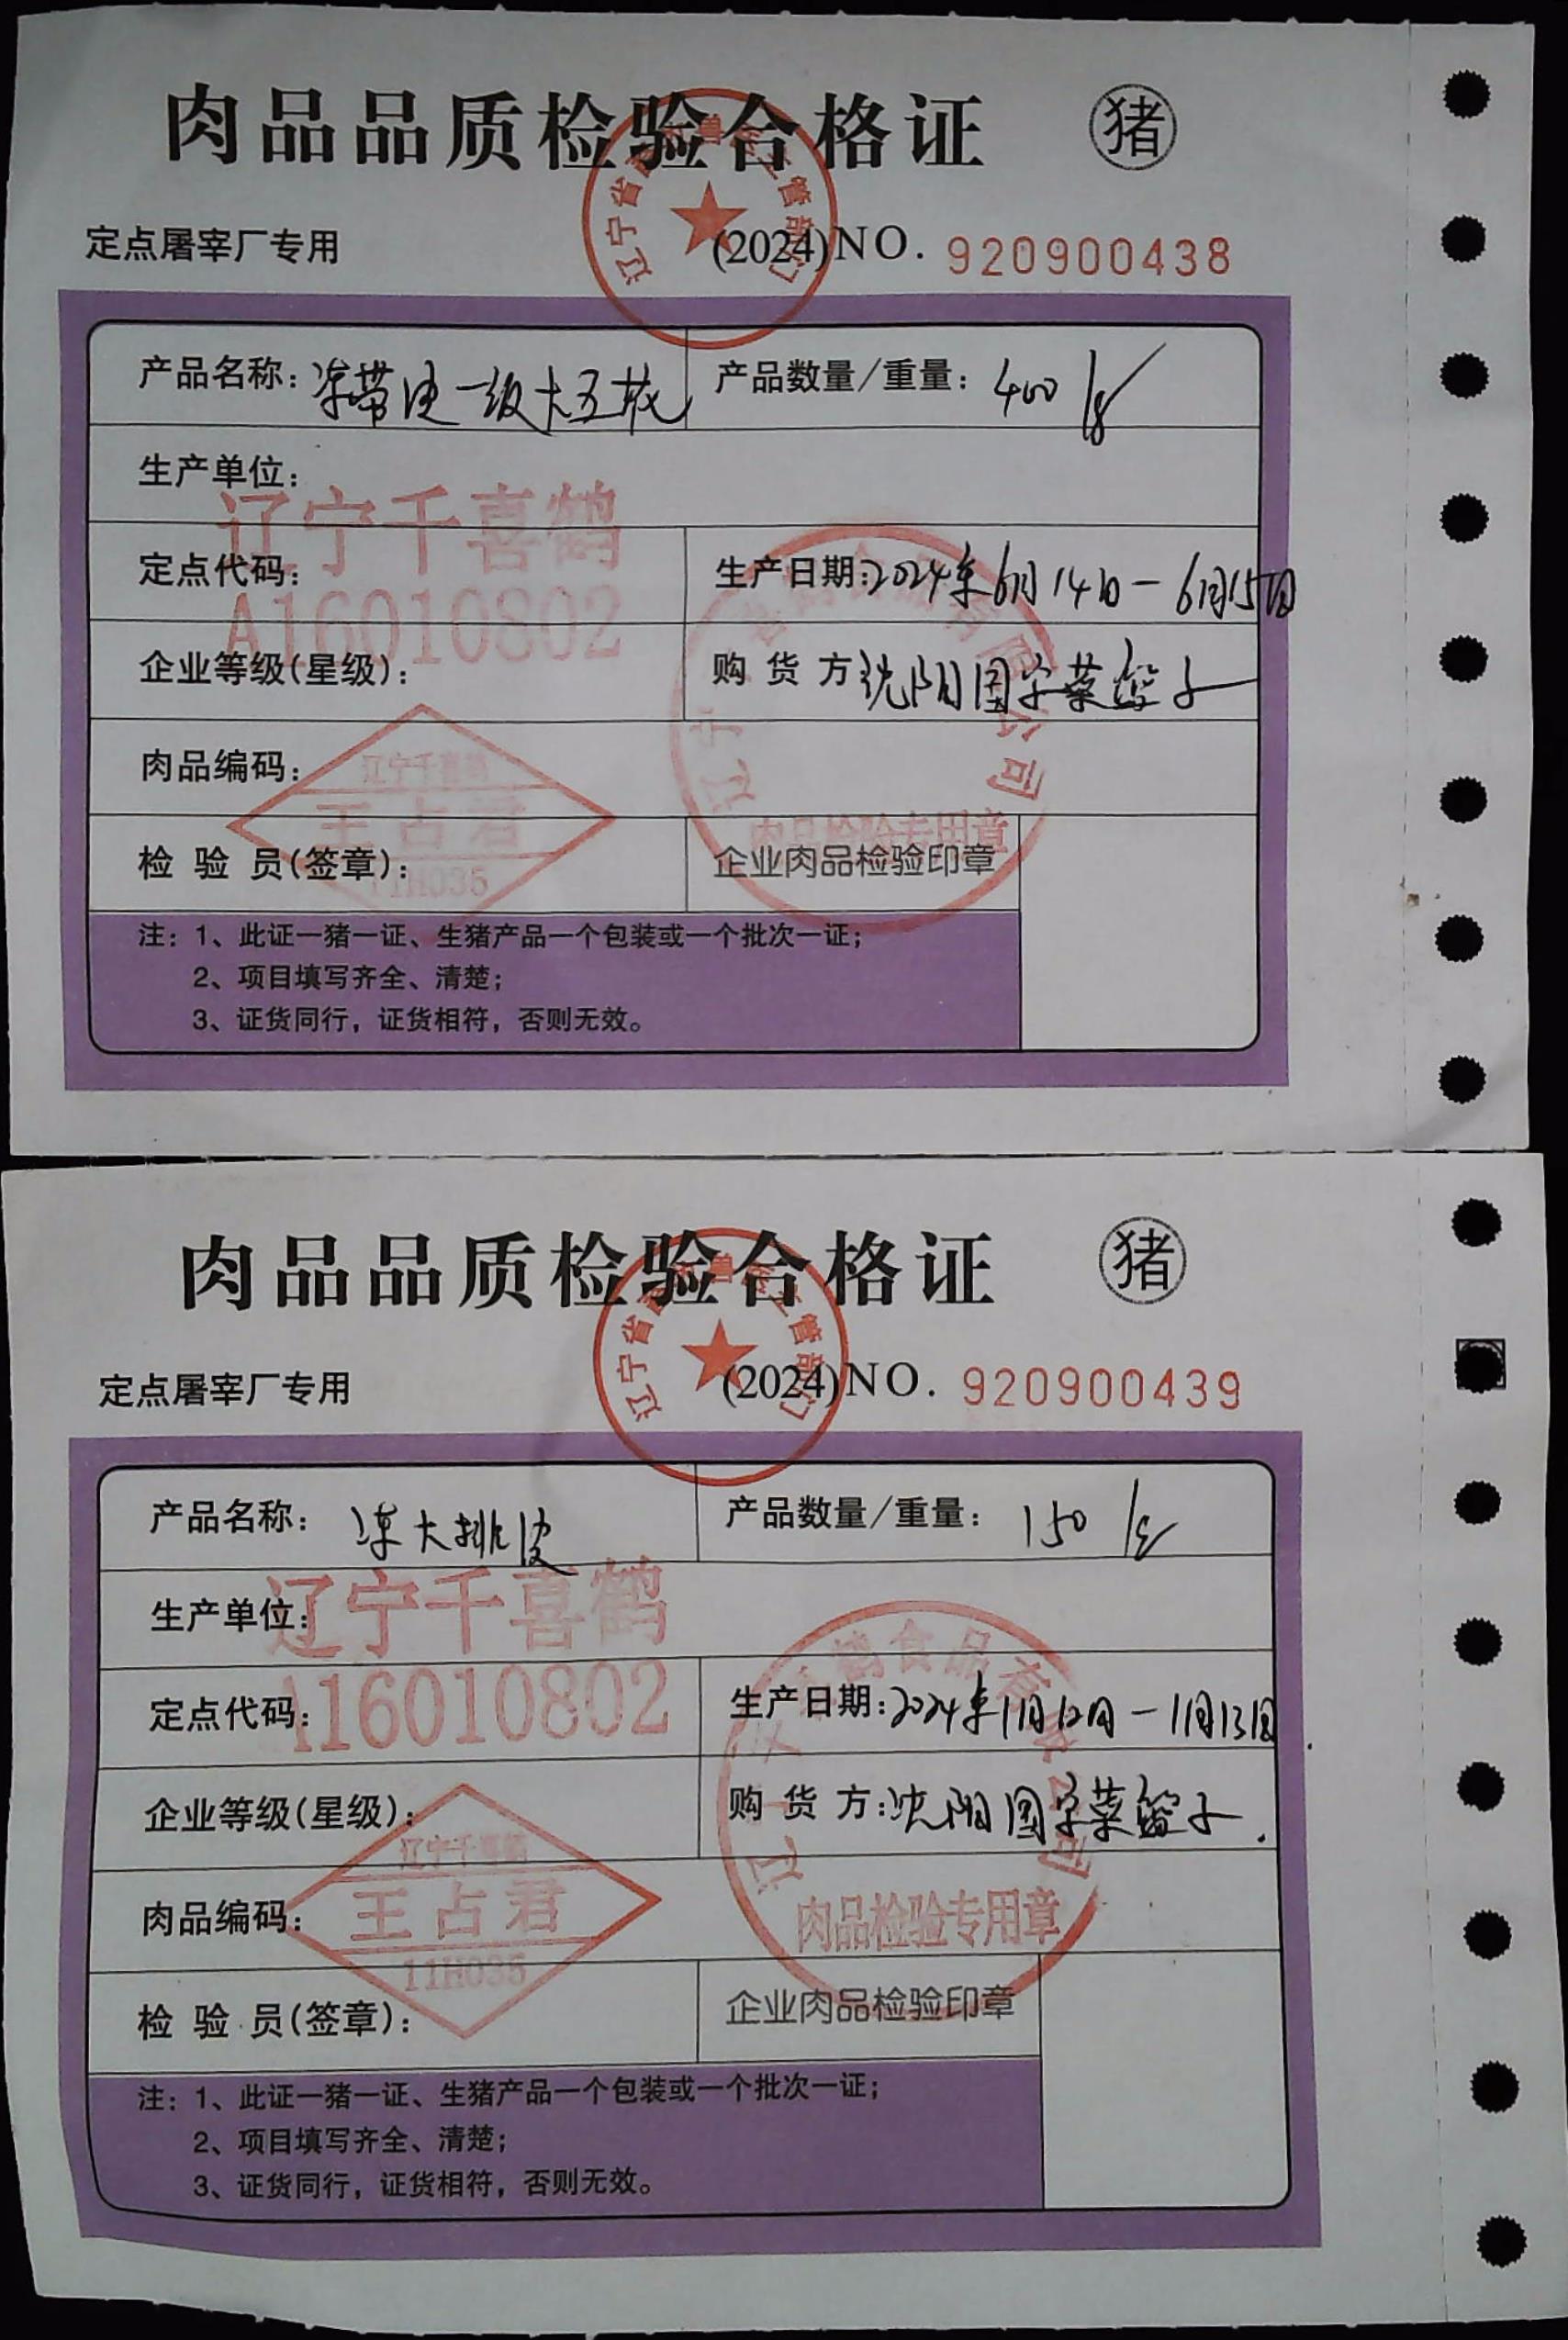 肉品品质检验合格证 猪
定点屠宰厂专用 (2024)NO. 920900438
产品名称: 冻带皮一级大五花 产品数量/重量: 400
生产单位: 辽宁千喜鹤
定点代码: A16010802 生产日期: 2024年6月14日-6月15日
企业等级(星级): 购货方 沈阳国字菜篮子
肉品编码:
辽宁千喜鹤
王占君
11H035
检验员(签章): 企业肉品检验印章
肉品检验专用章
注: 1、此证一猪一证、生猪产品一个包装或一个批次一证;
2、项目填写齐全、清楚;
3、证货同行，证货相符，否则无效。
肉品品质检验合格证 猪
定点屠宰厂专用 (2024)NO. 920900439
产品名称: 冻大排皮 产品数量/重量: 150
生产单位: 辽宁千喜鹤
定点代码: A16010802 生产日期: 2024年11月12日-11月13日
企业等级(星级): 购货方: 沈阳国字菜篮子
肉品编码:
辽宁千喜鹤
王占君
11H035
肉品检验专用章
检验员(签章): 企业肉品检验印章
注: 1、此证一猪一证、生猪产品一个包装或一个批次一证;
2、项目填写齐全、清楚;
3、证货同行，证货相符，否则无效。